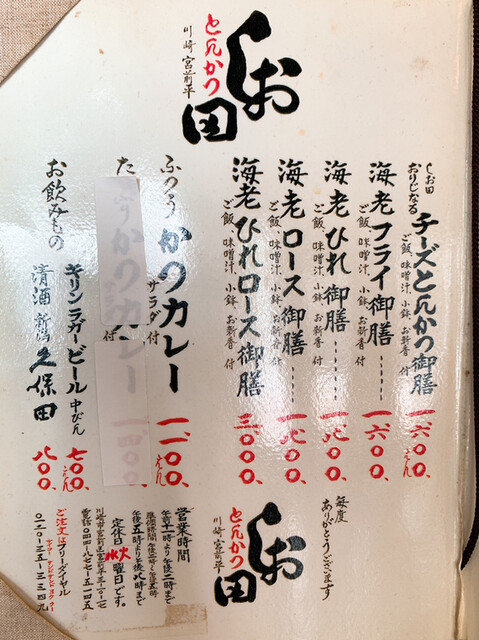 とんかつ
しお田
川崎 宮前平
しお田
おりじなる
チーズとんかつ御膳 一、六〇〇、えん
ご飯、味噌汁、小鉢、お新香 付
海老フライ御膳 一、六〇〇、
ご飯、味噌汁、小鉢、お新香 付
海老ひれ御膳 一、九〇〇、
ご飯、味噌汁、小鉢、お新香 付
海老ロース御膳 一、九〇〇、
ご飯、味噌汁、小鉢、お新香 付
海老ひれロース御膳 三、〇〇〇、
ご飯、味噌汁、小鉢、お新香 付
ふつうかつカレー 一、一〇〇、えん
サラダ付
かつカレー
付
お飲みもの
キリンラガービール 中びん 七〇〇、えん
清酒 新潟 久保田 八〇〇、
毎度
ありがとうございます
とんかつ
しお田
川崎 宮前平
営業時間
午前十一時より午後二時まで
準備時間 午後二時〜午後五時
午後五時より午後八時まで
定休日 火 水 曜日です。
川崎市宮前区宮前平三-一〇-一七
電話〇四四-八七七-五一四五
ご注文はフリーダイヤル
〇一二〇-三五-三三四九